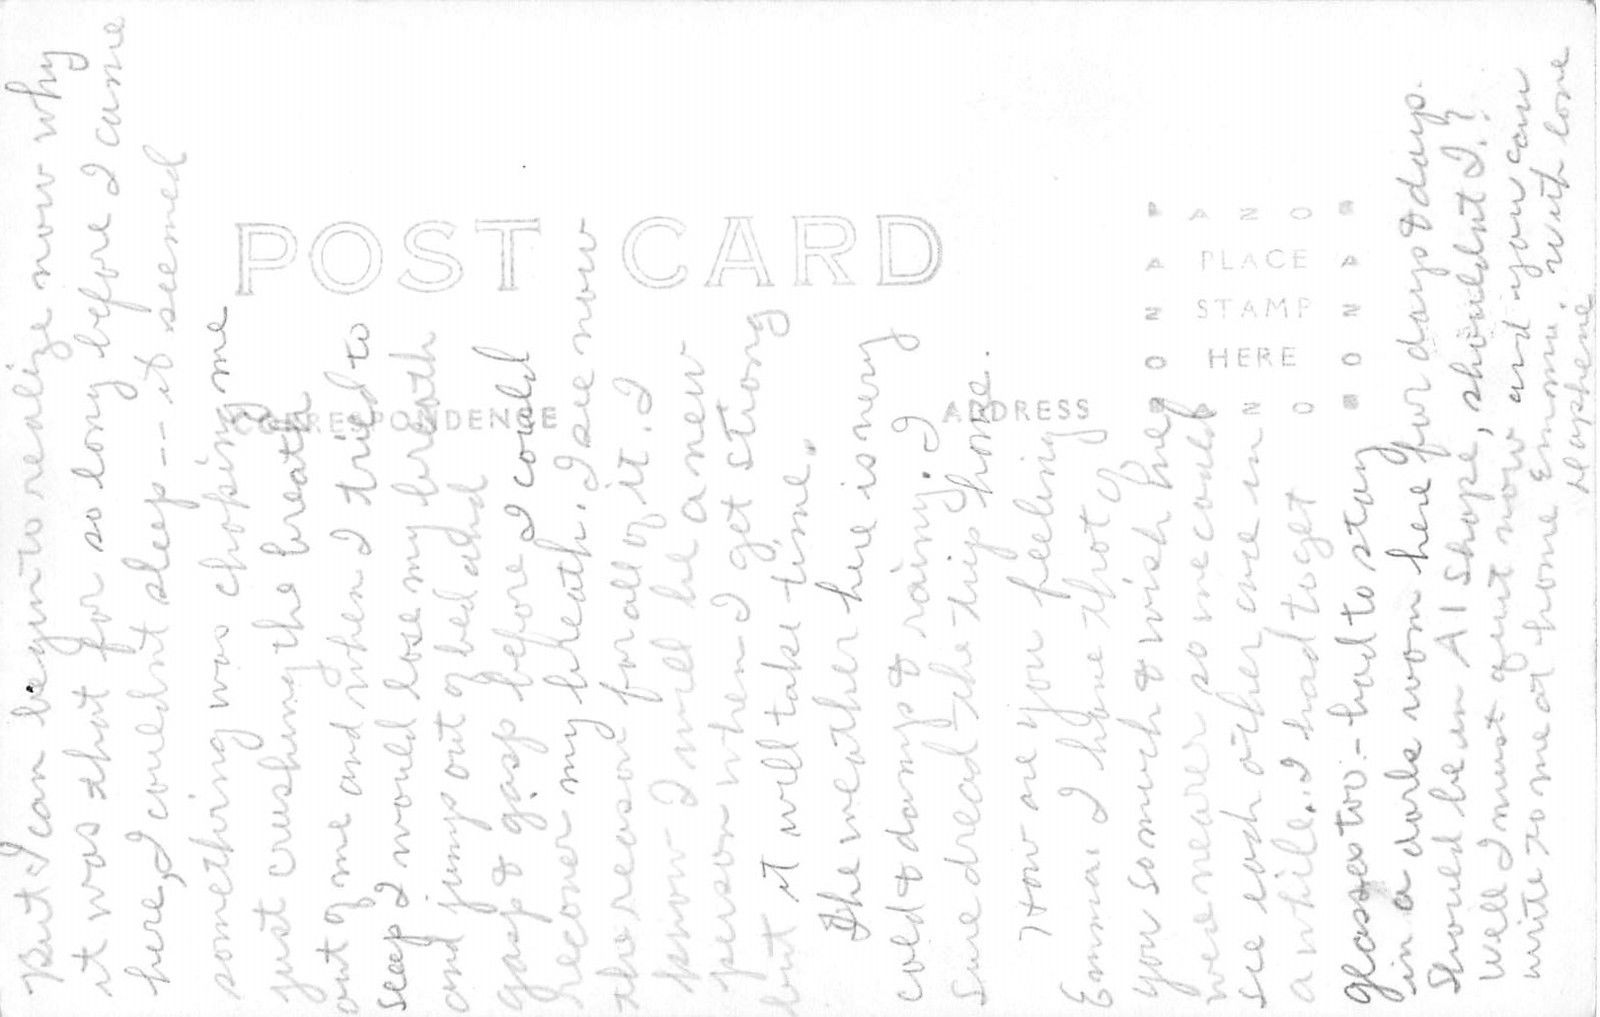 But I can begin to realize now why
it was that for so long before I came
here, I couldnt sleep -- it seemed
something was choking me
just crushing the breath
out of me and when I tried to
sleep I would lose my breath
and jump out of bed and
gasp & gasp before I could
recover my breath. I see now
the reason for all of it. I
know I will be a new
person when I get strong
but it will take time.
The weather here is very
cold & damp & rainy. I
sure dread the trip home.
How are you feeling
Emma. I have thot of
you so much & wish we
were nearer so we could
see each other once in
a while. I had to get
glasses too - had to stay
in a dark room here for days & days.
Should be in A1 shape, shouldnt I?
Well I must quit now and you can
write to me at home Emma. with love
Daphene
POST CARD
CORRESPONDENCE
ADDRESS
AZO
PLACE
STAMP
HERE
AZO